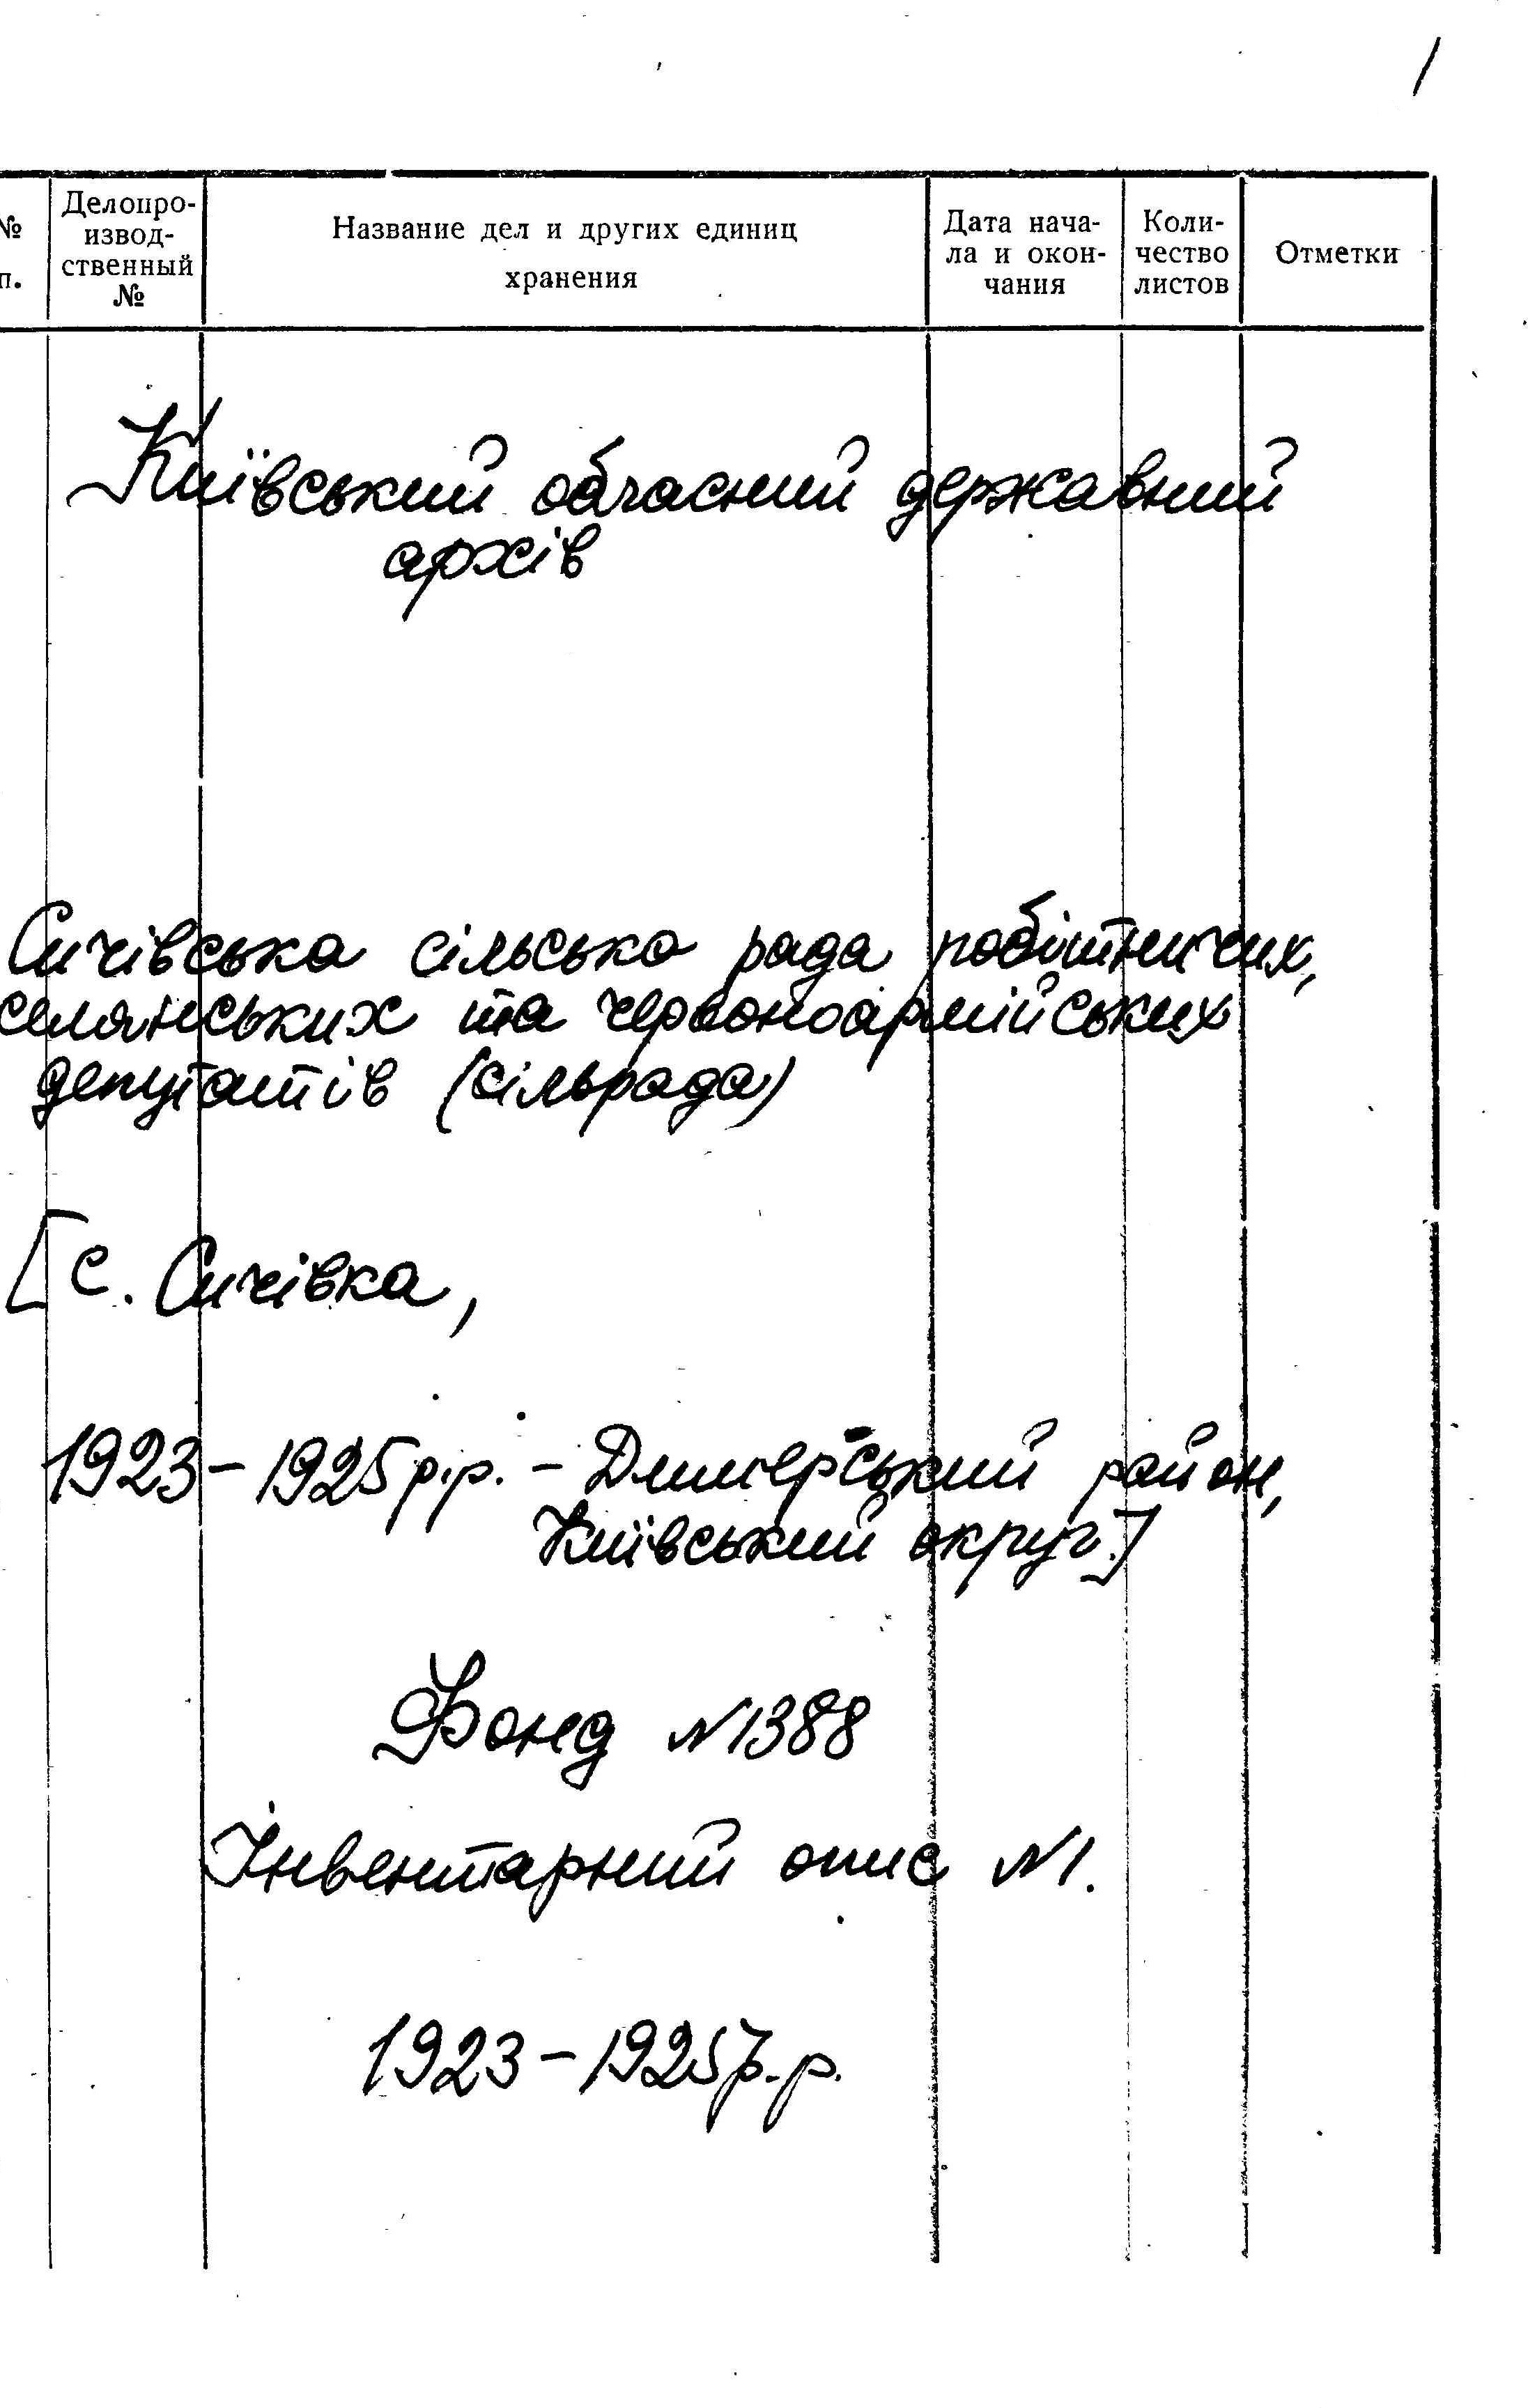 /
№
п.
Делопро-
извод-
ственный
№
Название дел и других единиц
хранения
Дата нача-
ла и окон-
чания
Коли-
чество
листов
Отметки
Київський обласний державний
архів
Сичівська сільська рада робітничих,
селянських та червоноармійських
депутатів (сільрада)
[с. Сичівка,
1923 - 1925 р.р. - Димерський район,
Київський округ.]
Фонд №1388
Інвентарний опис №1.
1923 - 1925 р.р.